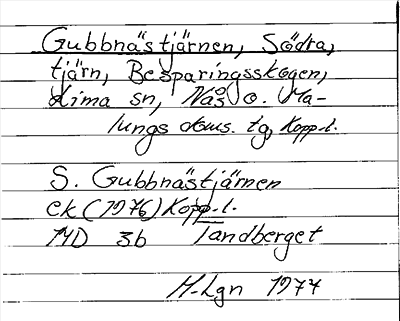 Gubbnästjärnen, Södra,
tjärn, Besparingsskogen,
Lima sn, Nås o. Ma-
lungs doms. tg, Kopp.l.
S. Gubbnästjärnen
ek (1976) Kopp.l.
14D 3b Tandberget
M-Lgn 1977